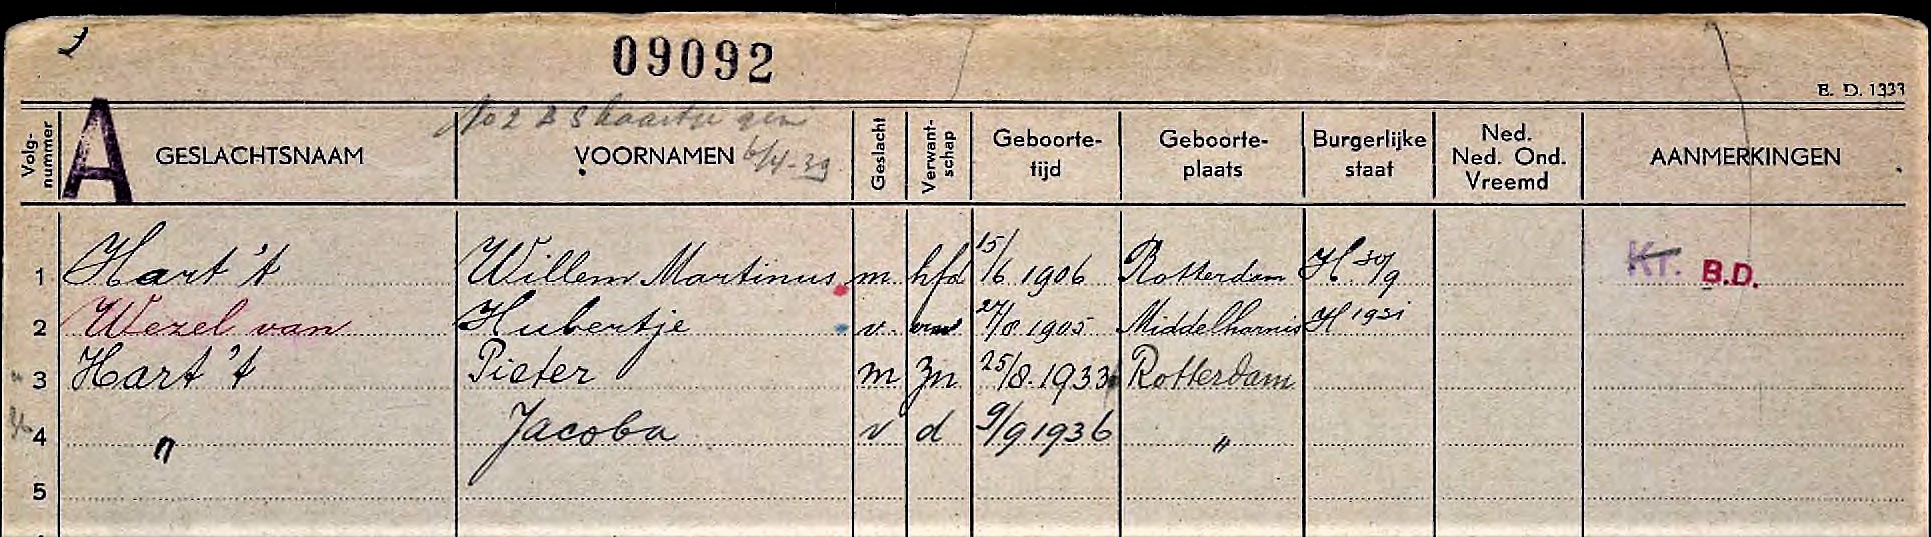 09092
E. D. 1333
No 2 B S kaartje gez
6/4-39
A
Volg-nummer GESLACHTSNAAM VOORNAMEN Geslacht Verwant-schap Geboorte-tijd Geboorte-plaats Burgerlijke staat Ned. Ned. Ond. Vreemd AANMERKINGEN
1 Hart 't Willem Martinus m hfd 15/6 1906 Rotterdam H 30/9 Kr. B.D.
2 Wezel van Hubertje v vrw 27/8 1905 Middelharnis H 1931
3 Hart 't Pieter m zn 25/8.1933 Rotterdam
4 " Jacoba v d 9/9 1936 "
5